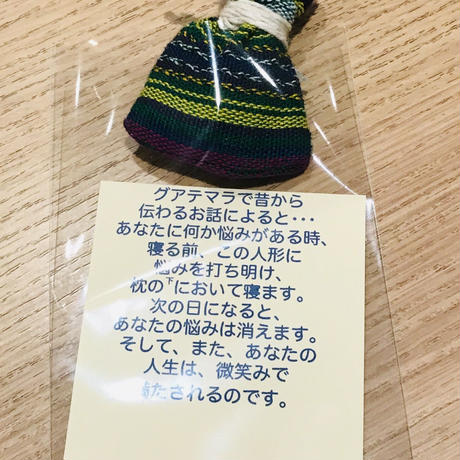 グアテマラで昔から
伝わるお話によると・・・
あなたに何か悩みがある時、
寝る前、この人形に
悩みを打ち明け、
枕の下において寝ます。
次の日になると、
あなたの悩みは消えます。
そして、また、あなたの
人生は、微笑みで
満たされるのです。